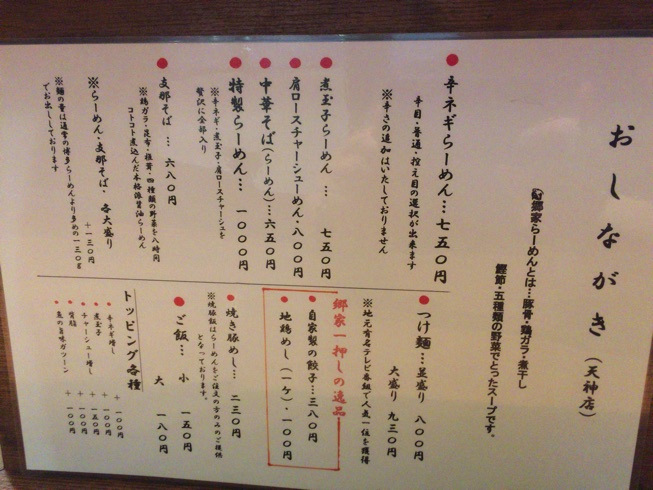 おしながき(天神店)
郷家らーめんとは…豚骨・鶏ガラ・煮干し
鰹節・五種類の野菜でとったスープです。
●辛ネギらーめん…七五〇円
辛目・普通・控え目の選択が出来ます
※辛さの追加はいたしておりません
●煮玉子らーめん…七五〇円
●肩ロースチャーシューめん・八〇〇円
●中華そば(らーめん)…六五〇円
●特製らーめん…一〇〇〇円
※辛ネギ・煮玉子・肩ロースチャーシュを
贅沢に全部入り
●支那そば…六八〇円
※鶏ガラ・昆布・椎茸・四種類の野菜を八時間
コトコト煮込んだ本格派醤油らーめん
※らーめん・支那そば、各大盛り
+一三〇円
※麺の量は通常の博多らーめんより多めの一三〇g
でお出ししております
●つけ麺…並盛り 八〇〇円
大盛り 九三〇円
※地元有名テレビ番組で人気一位を獲得
郷家一押しの逸品
●自家製の餃子…三八〇円
●地鶏めし(一ケ)・一〇〇円
●焼き豚めし…二三〇円
※焼豚飯はらーめんをご注文の方のみのご提供
となっております。
●ご飯…小 一五〇円
大 一八〇円
トッピング各種
●辛ネギ増し +一〇〇円
●煮玉子 +一〇〇円
●チャーシュー増し +一五〇円
●背脂 +一〇〇円
●魚の旨味ガツーン +一〇〇円